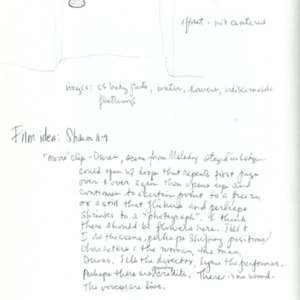 offset - not centered
images: as body parts, water, flowers, indiscernable
flutterings
Film idea: Sharon 4-9
"movie" clip - Duras, scene from Malady staged in
could open w/ loop that repeats first page
over & over again then opens up and
continues to a certain point to a freeze,
or a still that flickers and perhaps
shrinks to a "photograph". I think
there should be flowers here. Jill &
I do the scene, perhaps shifting position/
characters: the woman, the man,
Duras. Jill the director, Lynn the performer.
Perhaps there are. There is no sound.
The voices are live.